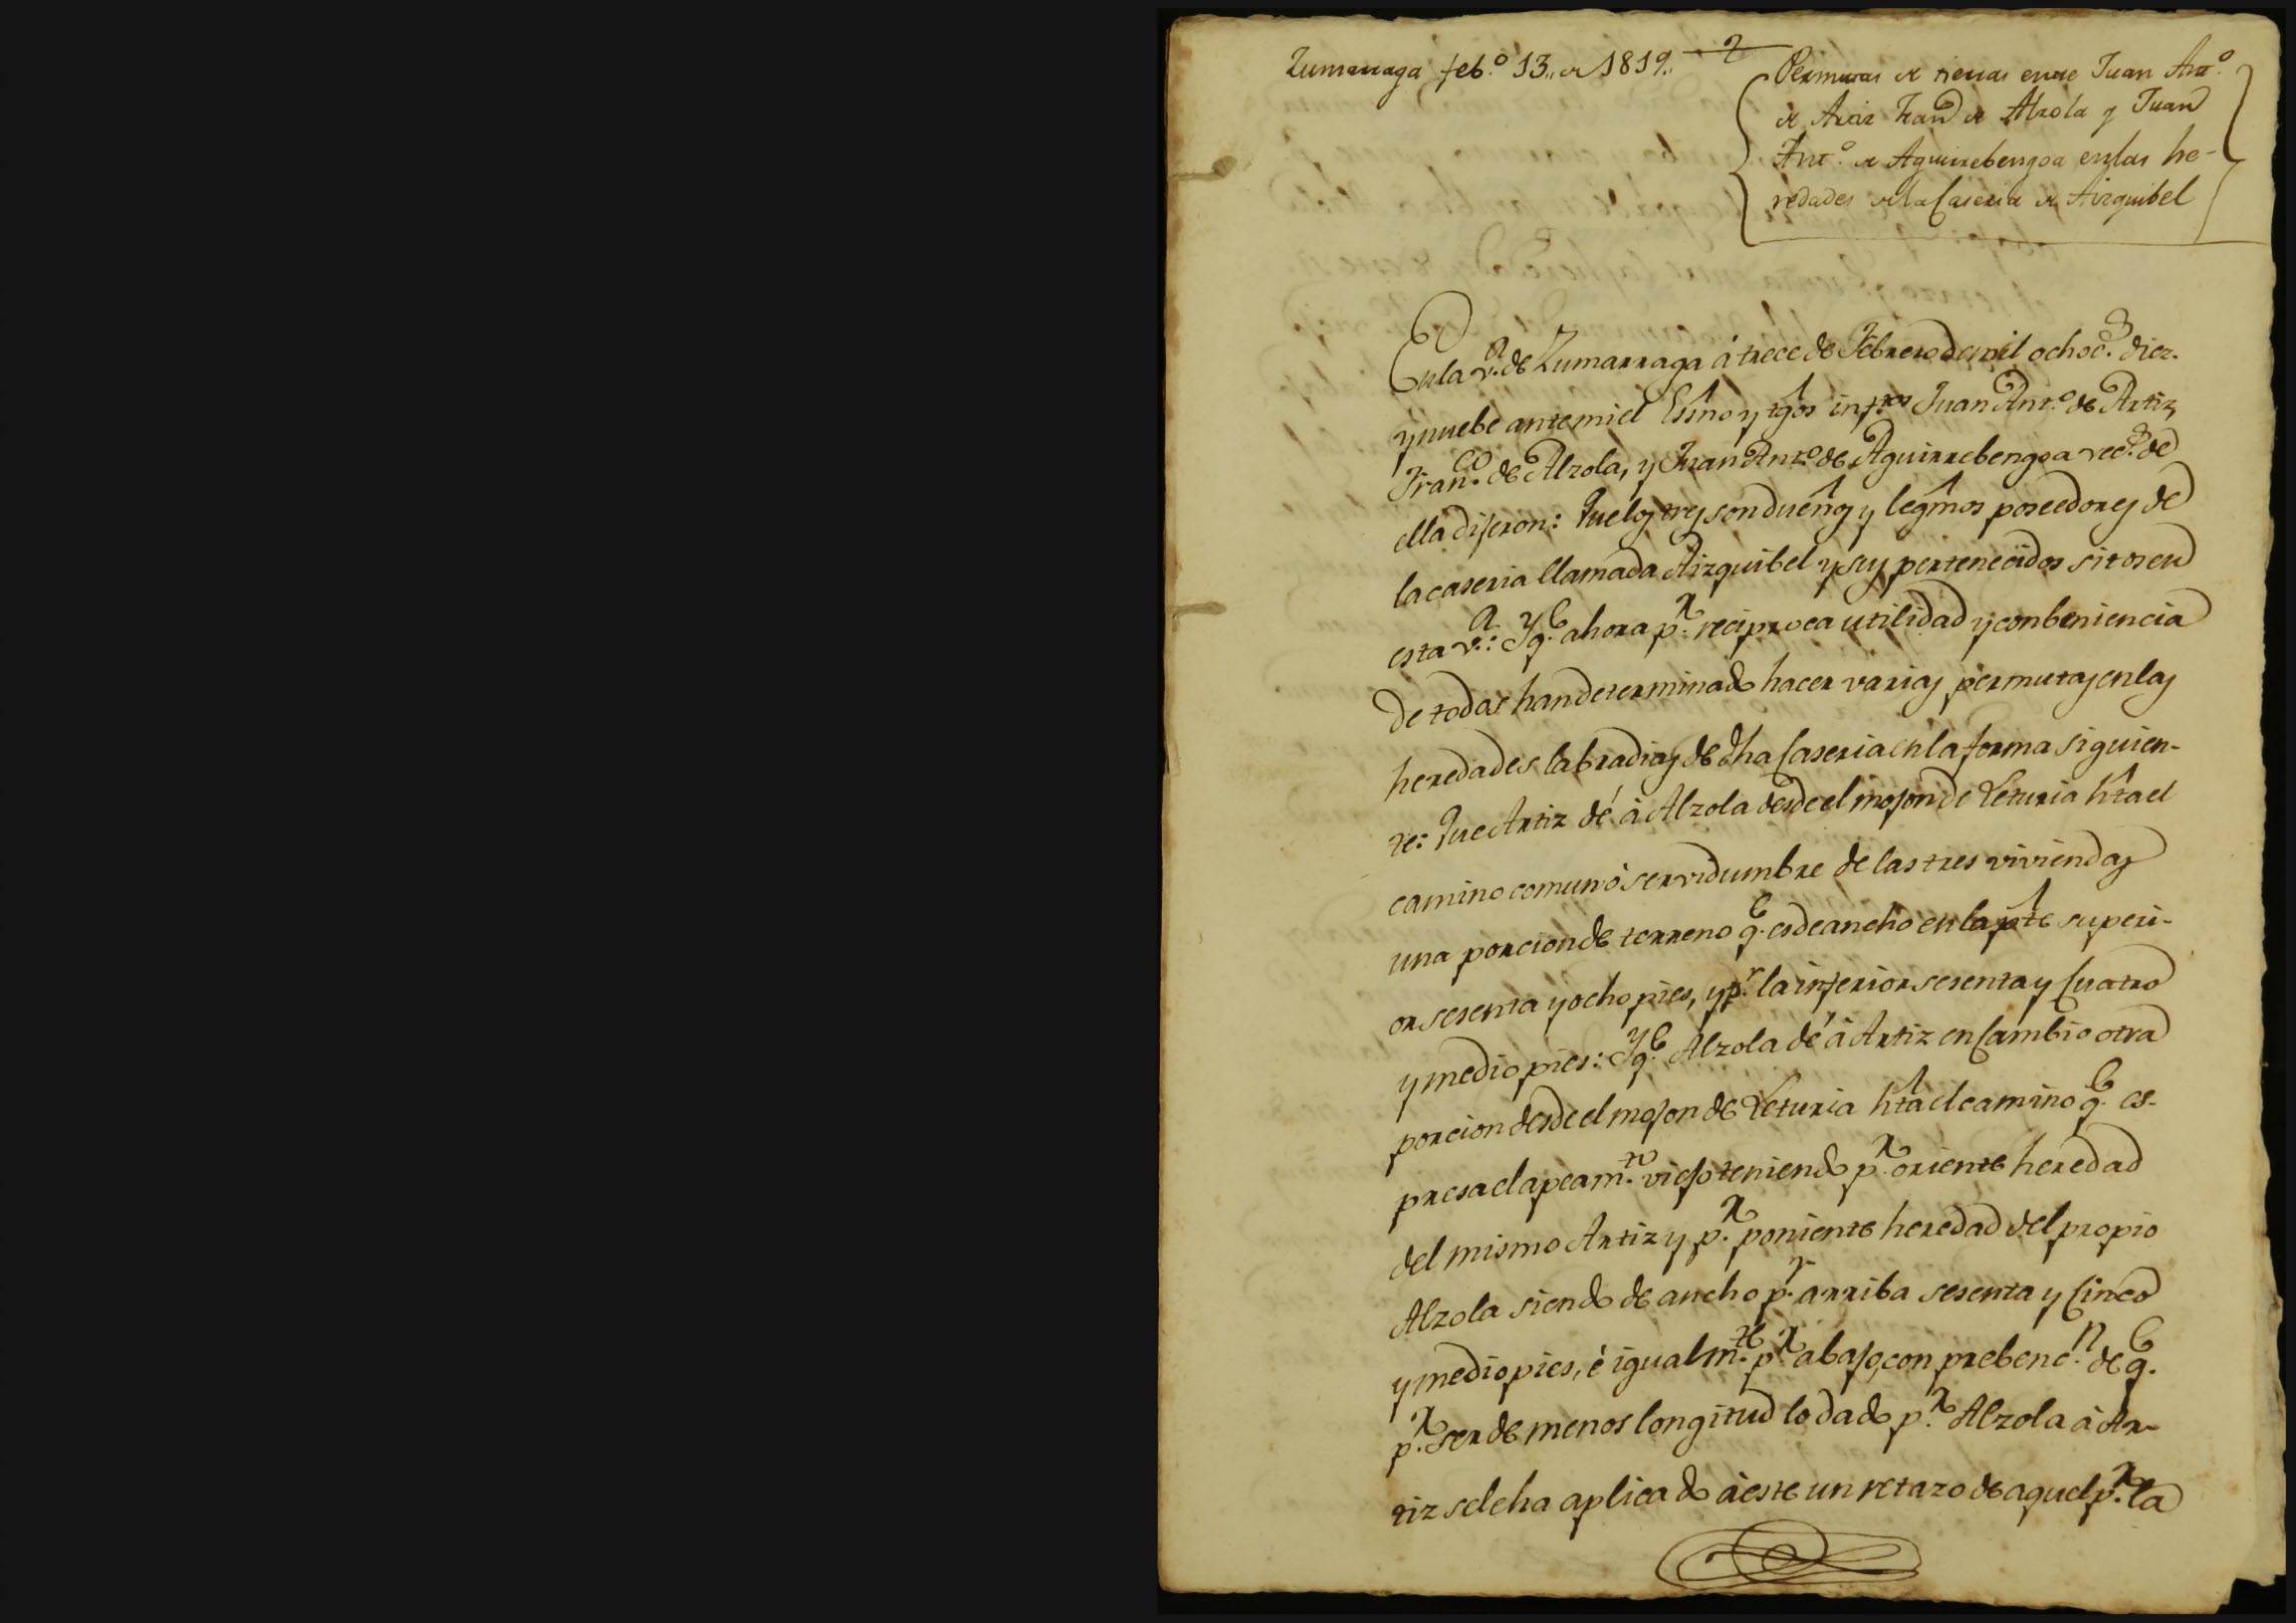 Zumarraga feb.º 13,, de 1819,,
Permutas de tierras entre Juan Ant.º
de Artiz Fran.co de Alzola y Juan
Ant.º de Aguirrebengoa en las he-
redades de la Caseria de Aizquibel
En la v.a de Zumarraga á trece de Febrero de mil ochoc.s diez-
y nuebe ante mi el Esno y tgos infros Juan Ant.º de Artiz,
Fran.co de Alzola, y Juan Ant.º de Aguirrebengoa vec.s de
ella dijeron: Que los tres son dueños y legmos poseedores de
la caseria llamada Aizquibel y sus pertenecidos sitos en
esta v.a: Y q.e ahora p.r reciproca utilidad y conbeniencia
de todos han determinado hacer varias permutas en las
heredades labradias de dha Caseria en la forma siguien-
te: Que Artiz dé à Alzola desde el mojon de Leturia hta el
camino comun ó servidumbre de las tres viviendas
una porcion de terreno q.e es de ancho en la pte superi-
or sesenta y ocho pies, y p.r la inferior sesenta y Cuatro
y medio pies: Y q.e Alzola dé à Artiz en Cambio otra
porcion desde el mojon de Leturia hta el camino q.e es-
presa el apeam.to viejo teniendo p.r oriente heredad
del mismo Artiz y p.r poniente heredad del propio
Alzola siendo de ancho p.r arriba sesenta y Cinco
y medio pies, è igualm.te p.r abajo, con prebenc.n de q.e
p.r ser de menos longitud lo dado p.r Alzola à Ar-
tiz se le ha aplicado à este un retazo de aquel p.r la